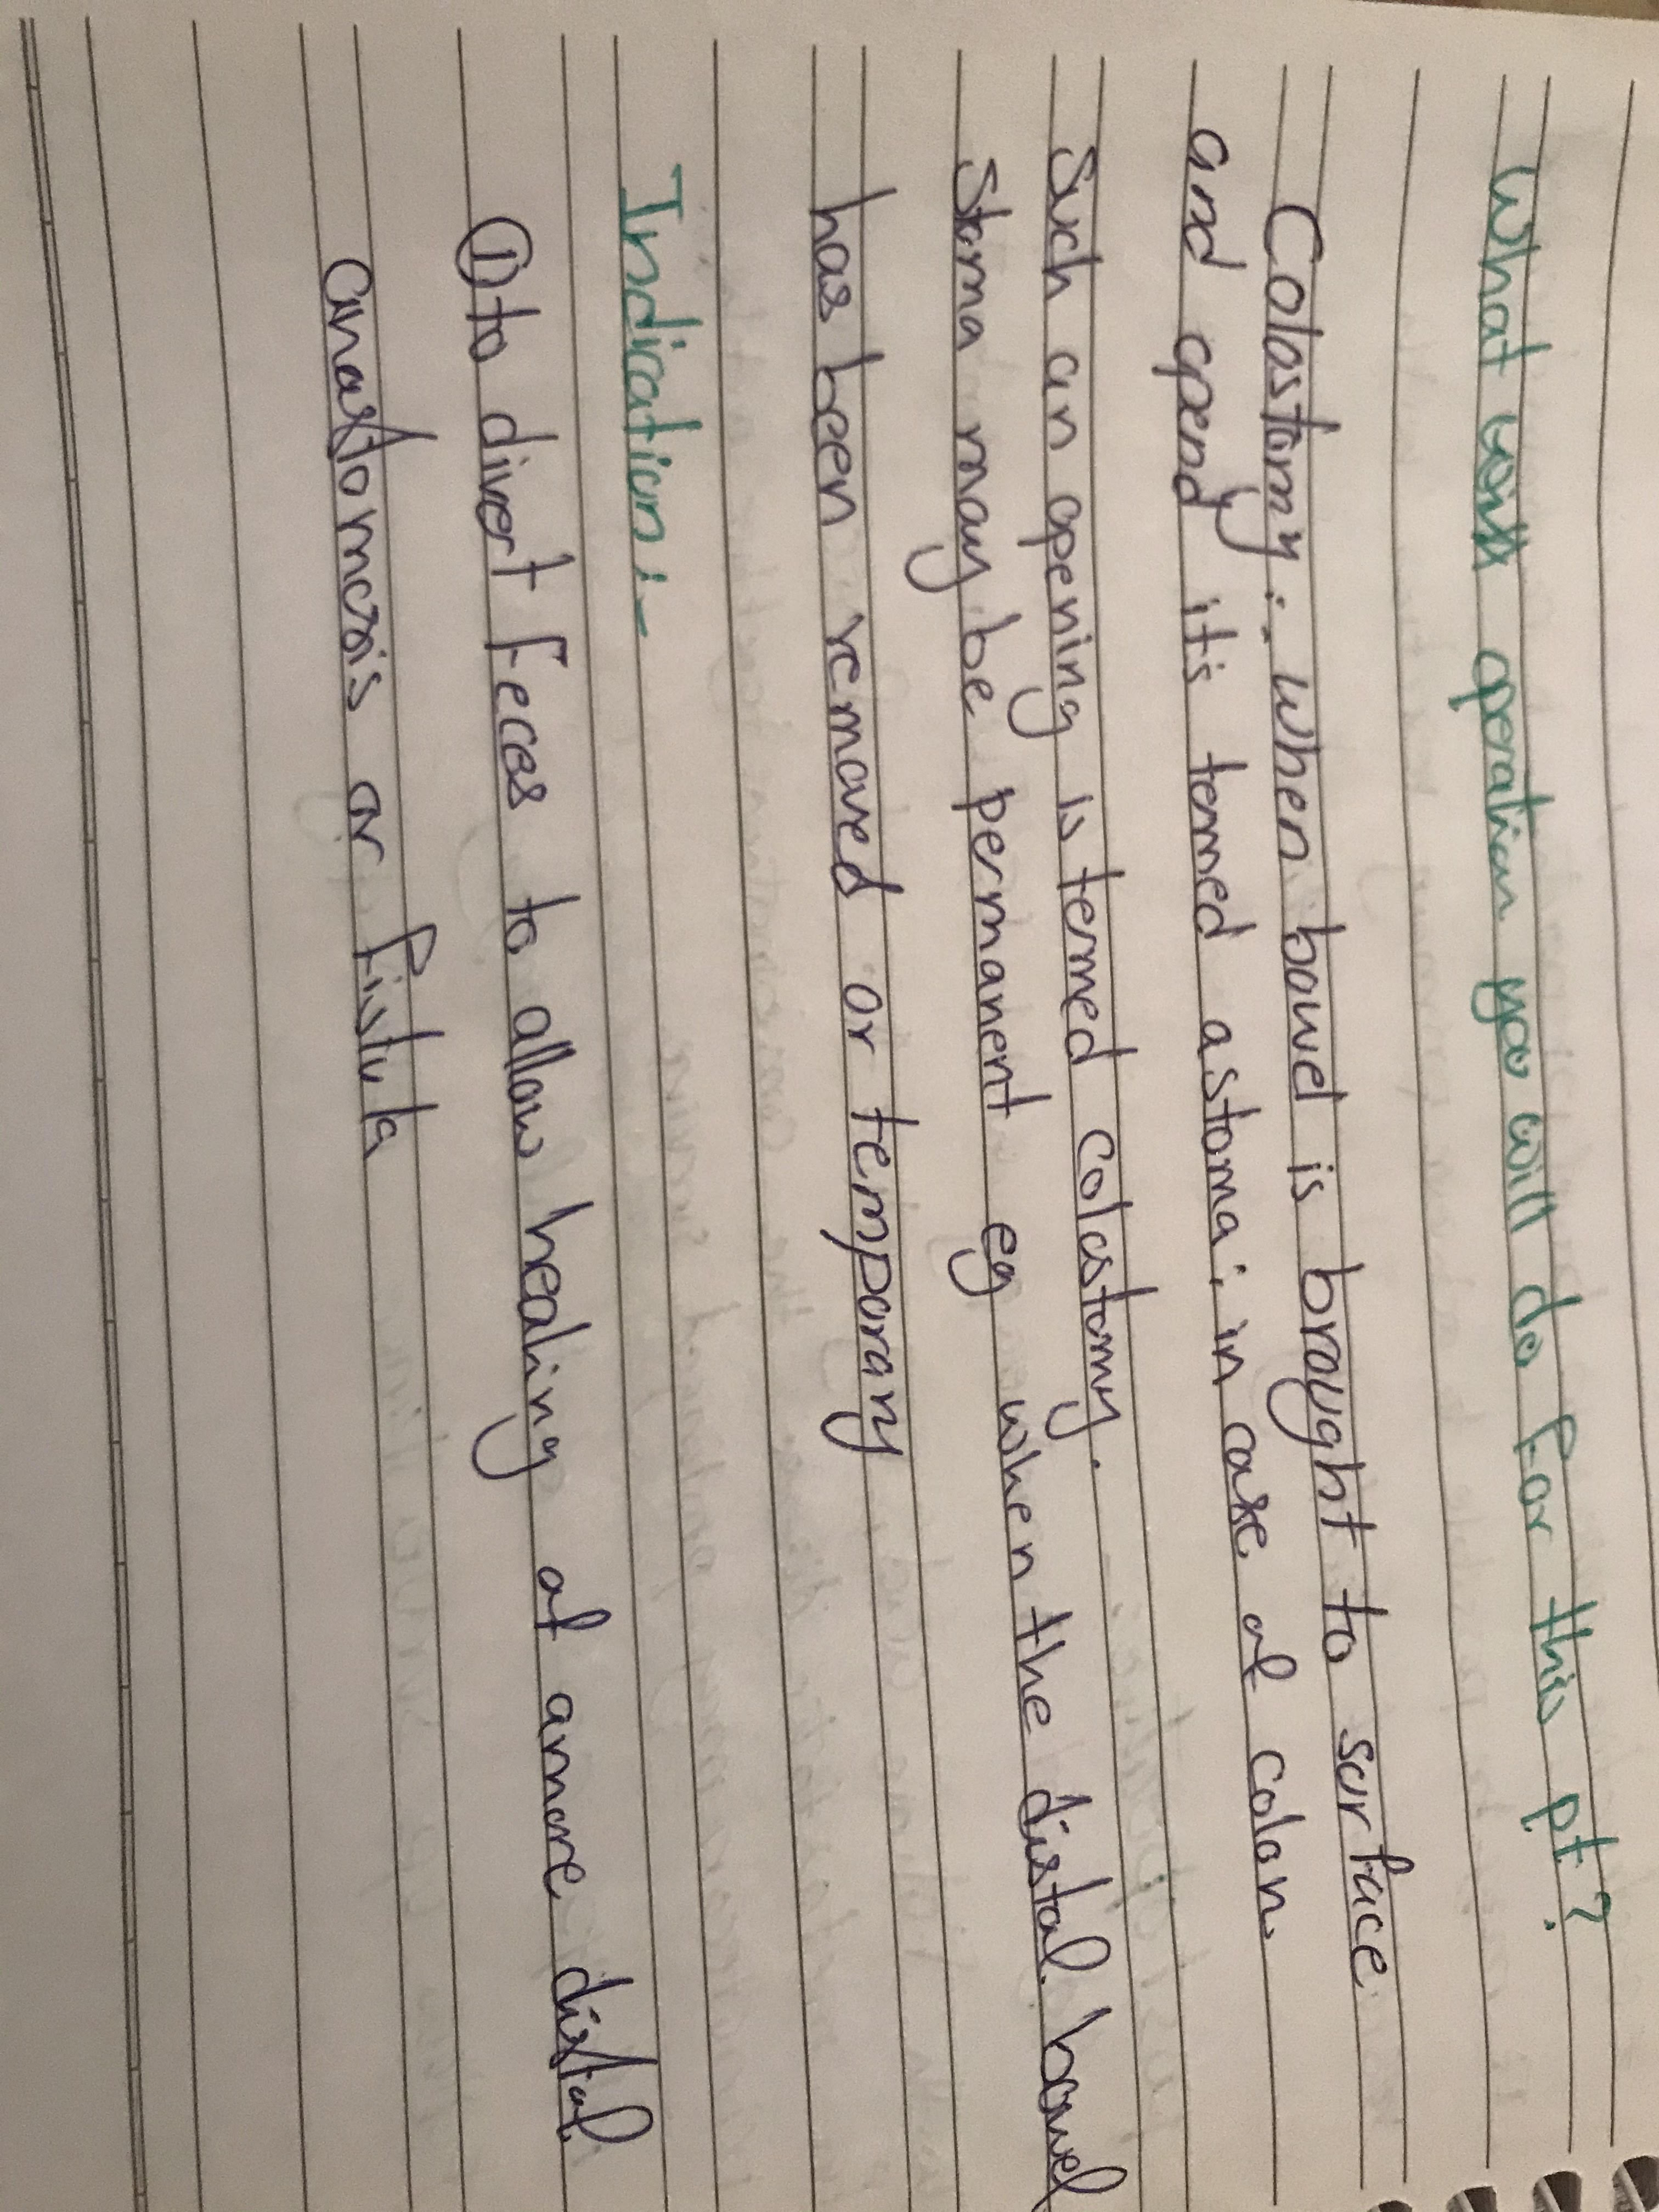 What will operation you will do for this pt?
Colostomy :- when bowel is brought to surface
and opend it's temed astoma ; in case of colon
Such an opening is termed colostomy.
Stoma may be permanent eg when the distal bowel
has been removed or temporary
Indication :-
① to divert feces to allow healing of amore distal
anastomosis or fistula